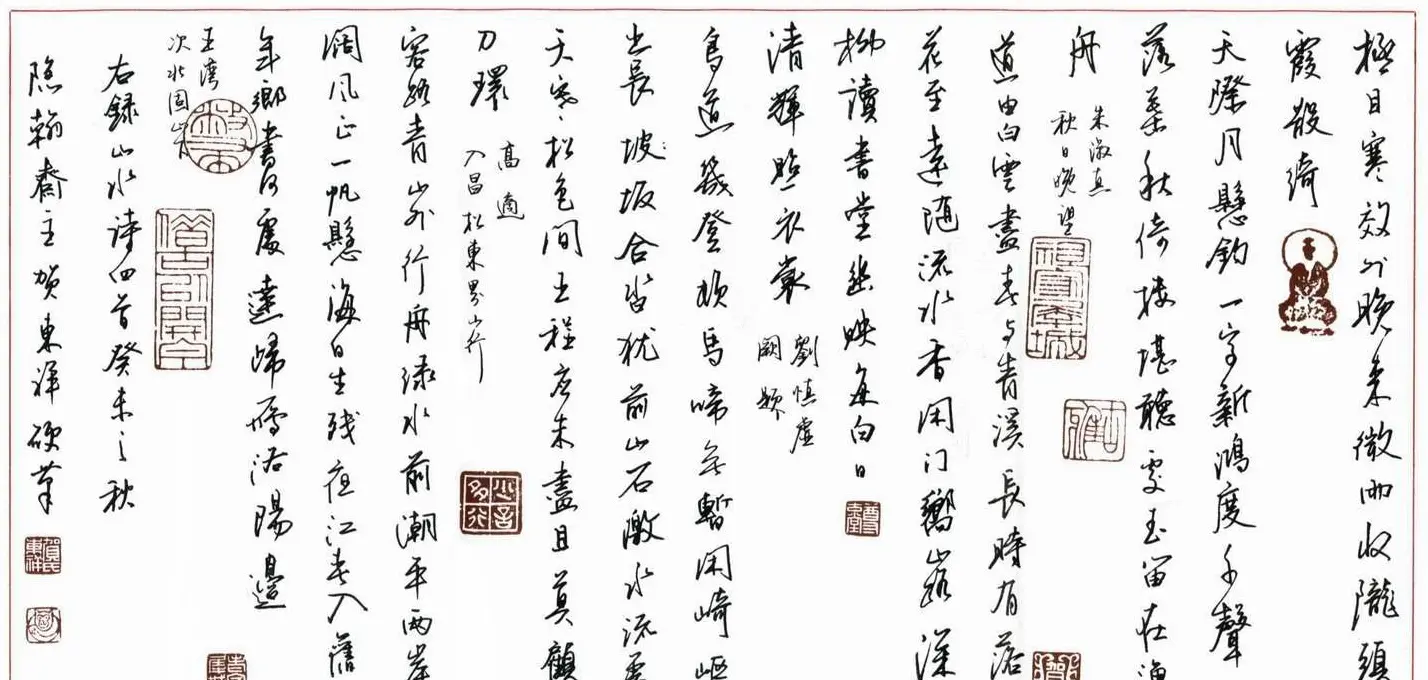 極目寒郊外晚來微雨收隴頭
霞散綺
天際月懸鈎一字新鴻度千聲
落葉秋倚樓堪聽處玉笛在漁
舟
朱淑真
秋日晚望
道由白雲盡春与青溪長時有落
花至遠隨流水香閑门嚮山路深
柳讀書堂幽映每白日
清輝照衣裳
劉慎虛
闕題
鳥道幾登頓馬啼無暫閑崎嶇
出長坡坂合沓猶前山石激水流處
天寒松色間王程应未盡且莫顧
刀環
高適
入昌松東界山行
客路青山外行舟緑水前潮平兩岸
闊风正一帆懸海日生残夜江春入舊
年鄉書何處達歸雁洛陽邊
王灣
次北固山下
右録山水詩四首癸未之秋
隐翰齋主賀東祥硬筆
賀氏東祥